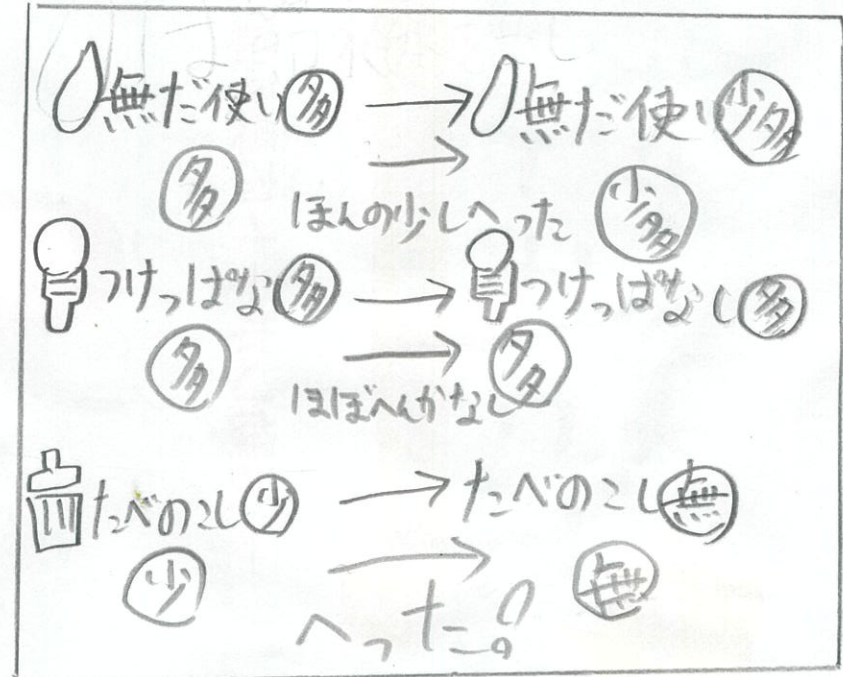 無だ使い 多 → 無だ使い 少多
多 → 少多
ほんの少しへった
つけっぱなし 多 → つけっぱなし 多
多 → 多
ほぼへんかなし
たべのこし 少 → たべのこし 無
少 → 無
へった!